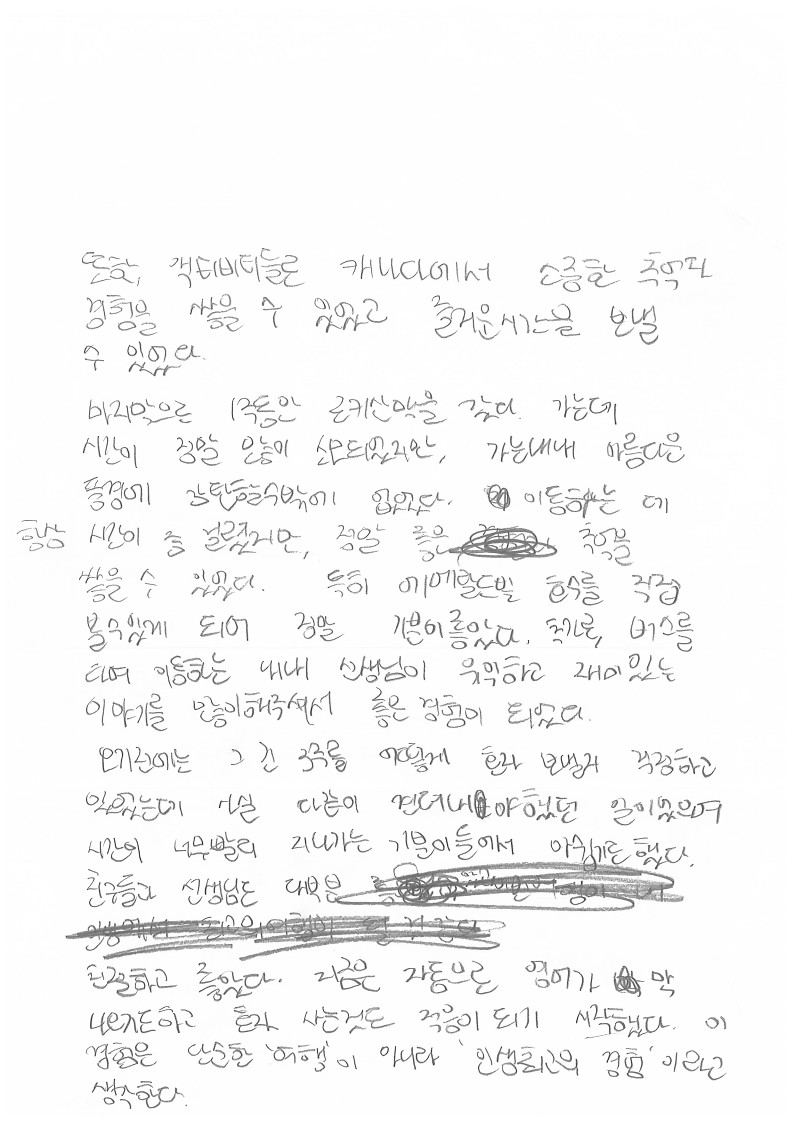 또한, 액티비티들로 캐나다에서 소중한 추억과
경험을 쌓을 수 있었고 즐거운시간을 보낼
수 있었다.
마지막으로 1주동안 로키산맥을 갔다. 가는데
시간이 정말 많이 소모되었지만, 가는내내 아름다운
풍경에 감탄할수밖에 없었다. 이동하는 데
항상 시간이 좀 걸렸지만, 정말 좋은 추억을
쌓을 수 있었다. 특히 에메랄드빛 호수를 직접
볼수있게 되어 정말 기분이좋았다. 추가로, 버스를
타며 이동하는 내내 선생님이 유익하고 재미있는
이야기를 많이해주셔서 좋은 경험이 되었다.
오기전에는 그 긴 3주를 어떻게 혼자 보낼까 걱정하고
있었는데 사실 다같이 견뎌내야했던 일이었으며
시간이 너무빨리 지나가는 기분이들어서 아쉽기도했다.
친구들과 선생님도 대부분
친절하고 좋았다. 지금은 자동으로 영어가 막
나오기도하고 혼자 사는것도 적응이 되기 시작했다. 이
경험은 단순한 '여행'이 아니라 '인생최고의 경험'이라고
생각한다.